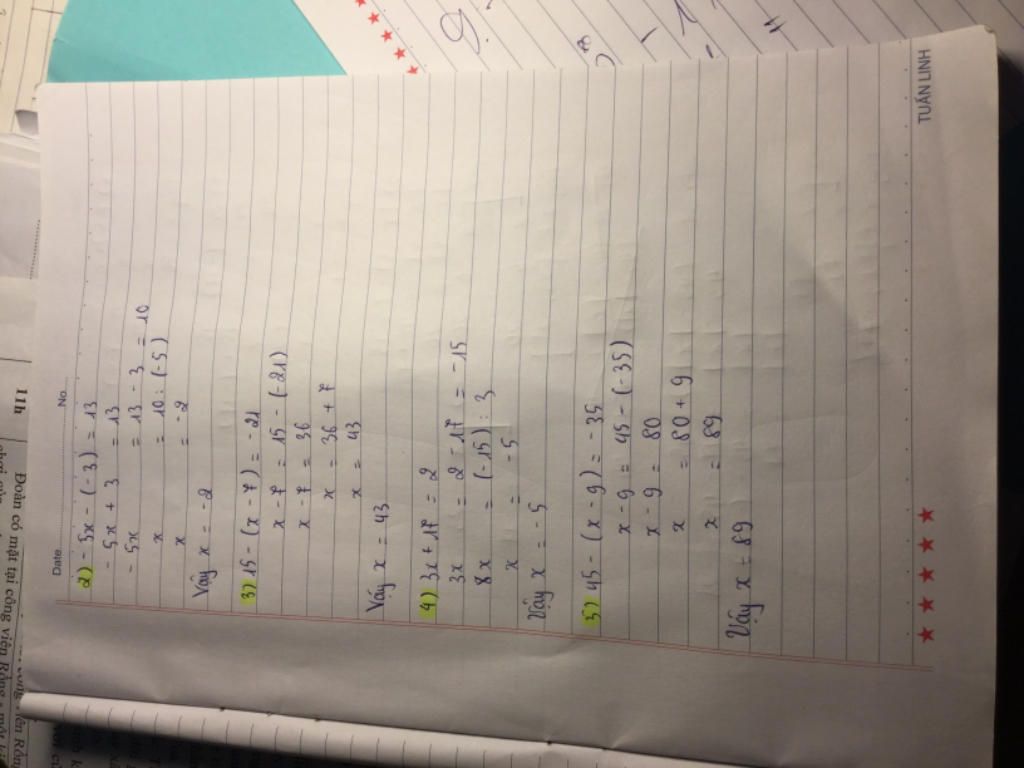 Date
No
2) - 5x - (-3) = 13
- 5x + 3 = 13
- 5x = 13 - 3 = 10
x = 10 : (-5)
x = -2
Vậy x = -2
3) 15 - (x - 7) = -21
x - 7 = 15 - (-21)
x - 7 = 36
x = 36 + 7
x = 43
Vậy x = 43
4) 3x + 17 = 2
3x = 2 - 17 = -15
8x = (-15) : 3
x = -5
Vậy x = -5
5) 45 - (x - 9) = -35
x - 9 = 45 - (-35)
x - 9 = 80
x = 80 + 9
x = 89
Vậy x = 89
TUẤN LINH
11h
Đoàn có mặt tại công viên Rồng
9